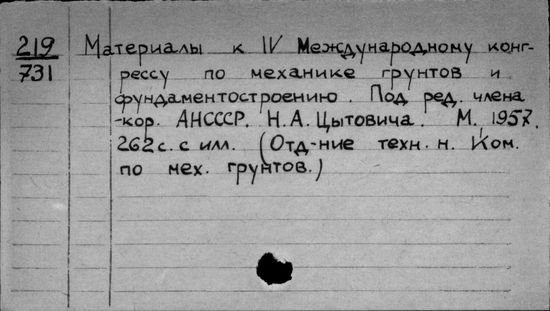 219
731
Материалы к IV Международному конг-
рессу по механике грунтов и
фундаментостроению. Под ред. члена
-кор. АНСССР. Н.А. Цытовича. М. 1957.
262 с. с илл. (Отд-ние техн. н. Ком.
по мех. грунтов.)